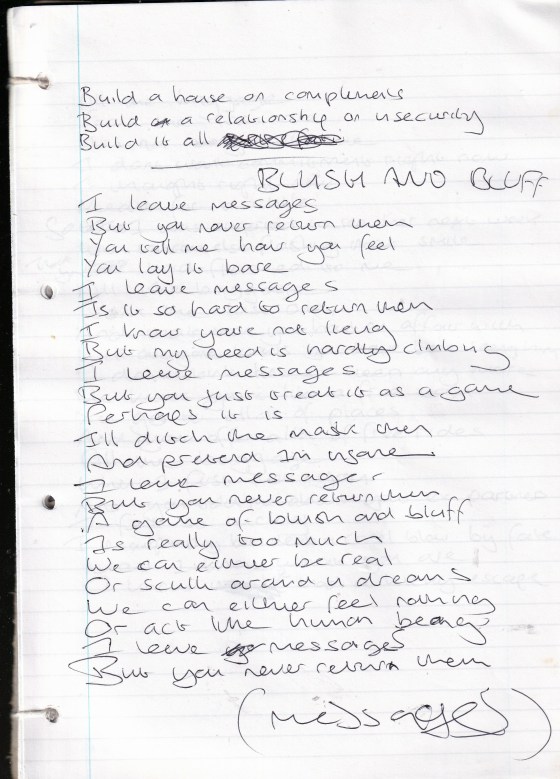 Build a house on complements
Build a relationship on insecurity
Build it all
BLUSH AND BLUFF
I leave messages
But you never return them
You tell me how you feel
You lay it bare
I leave messages
Is it so hard to return them
I know youre not lieing
But my need is hardly climbing
I leave messages
But you just treat it as a game
Perhaps it is
Ill ditch the mask then
And pretend Im insane
I leave messages
But you never return them
A game of blush and bluff
Is really too much
We can either be real
Or sculk around in dreams
We can either feel nothing
Or act like human beings
I leave messages
But you never return them
(messages)